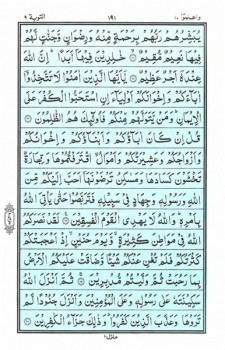 واعلموا ١٠ ١٩١ التوبة ٩
يُبَشِّرُهُمْ رَبُّهُمْ بِرَحْمَةٍ مِّنْهُ وَرِضْوَانٍ وَّجَنّٰتٍ لَّهُمْ
فِيْهَا نَعِيْمٌ مُّقِيْمٌ ۙ خٰلِدِيْنَ فِيْهَآ اَبَدًا ؕ اِنَّ اللّٰهَ
عِنْدَهٗٓ اَجْرٌ عَظِيْمٌ يٰٓاَيُّهَا الَّذِيْنَ اٰمَنُوْا لَا تَتَّخِذُوْٓا
اٰبَآءَكُمْ وَاِخْوَانَكُمْ اَوْلِيَآءَ اِنِ اسْتَحَبُّوا الْكُفْرَ عَلَى
الْاِيْمَانِ ؕ وَمَنْ يَّتَوَلَّهُمْ مِّنْكُمْ فَاُولٰٓئِكَ هُمُ الظّٰلِمُوْنَ
قُلْ اِنْ كَانَ اٰبَآؤُكُمْ وَاَبْنَآؤُكُمْ وَاِخْوَانُكُمْ
وَاَزْوَاجُكُمْ وَعَشِيْرَتُكُمْ وَاَمْوَالُ ۨاقْتَرَفْتُمُوْهَا وَتِجَارَةٌ
تَخْشَوْنَ كَسَادَهَا وَمَسٰكِنُ تَرْضَوْنَهَآ اَحَبَّ اِلَيْكُمْ مِّنَ
اللّٰهِ وَرَسُوْلِهٖ وَجِهَادٍ فِيْ سَبِيْلِهٖ فَتَرَبَّصُوْا حَتّٰى يَاْتِيَ اللّٰهُ
بِاَمْرِهٖ ؕ وَاللّٰهُ لَا يَهْدِى الْقَوْمَ الْفٰسِقِيْنَ لَقَدْ نَصَرَكُمُ
اللّٰهُ فِيْ مَوَاطِنَ كَثِيْرَةٍ ۙ وَّيَوْمَ حُنَيْنٍ ۙ اِذْ اَعْجَبَتْكُمْ
كَثْرَتُكُمْ فَلَمْ تُغْنِ عَنْكُمْ شَيْئًا وَّضَاقَتْ عَلَيْكُمُ الْاَرْضُ
بِمَا رَحُبَتْ ثُمَّ وَلَّيْتُمْ مُّدْبِرِيْنَ ثُمَّ اَنْزَلَ اللّٰهُ
سَكِيْنَتَهٗ عَلٰى رَسُوْلِهٖ وَعَلَى الْمُؤْمِنِيْنَ وَاَنْزَلَ جُنُوْدًا لَّمْ
تَرَوْهَا وَعَذَّبَ الَّذِيْنَ كَفَرُوْا ؕ وَذٰلِكَ جَزَآءُ الْكٰفِرِيْنَ
منزل ٢